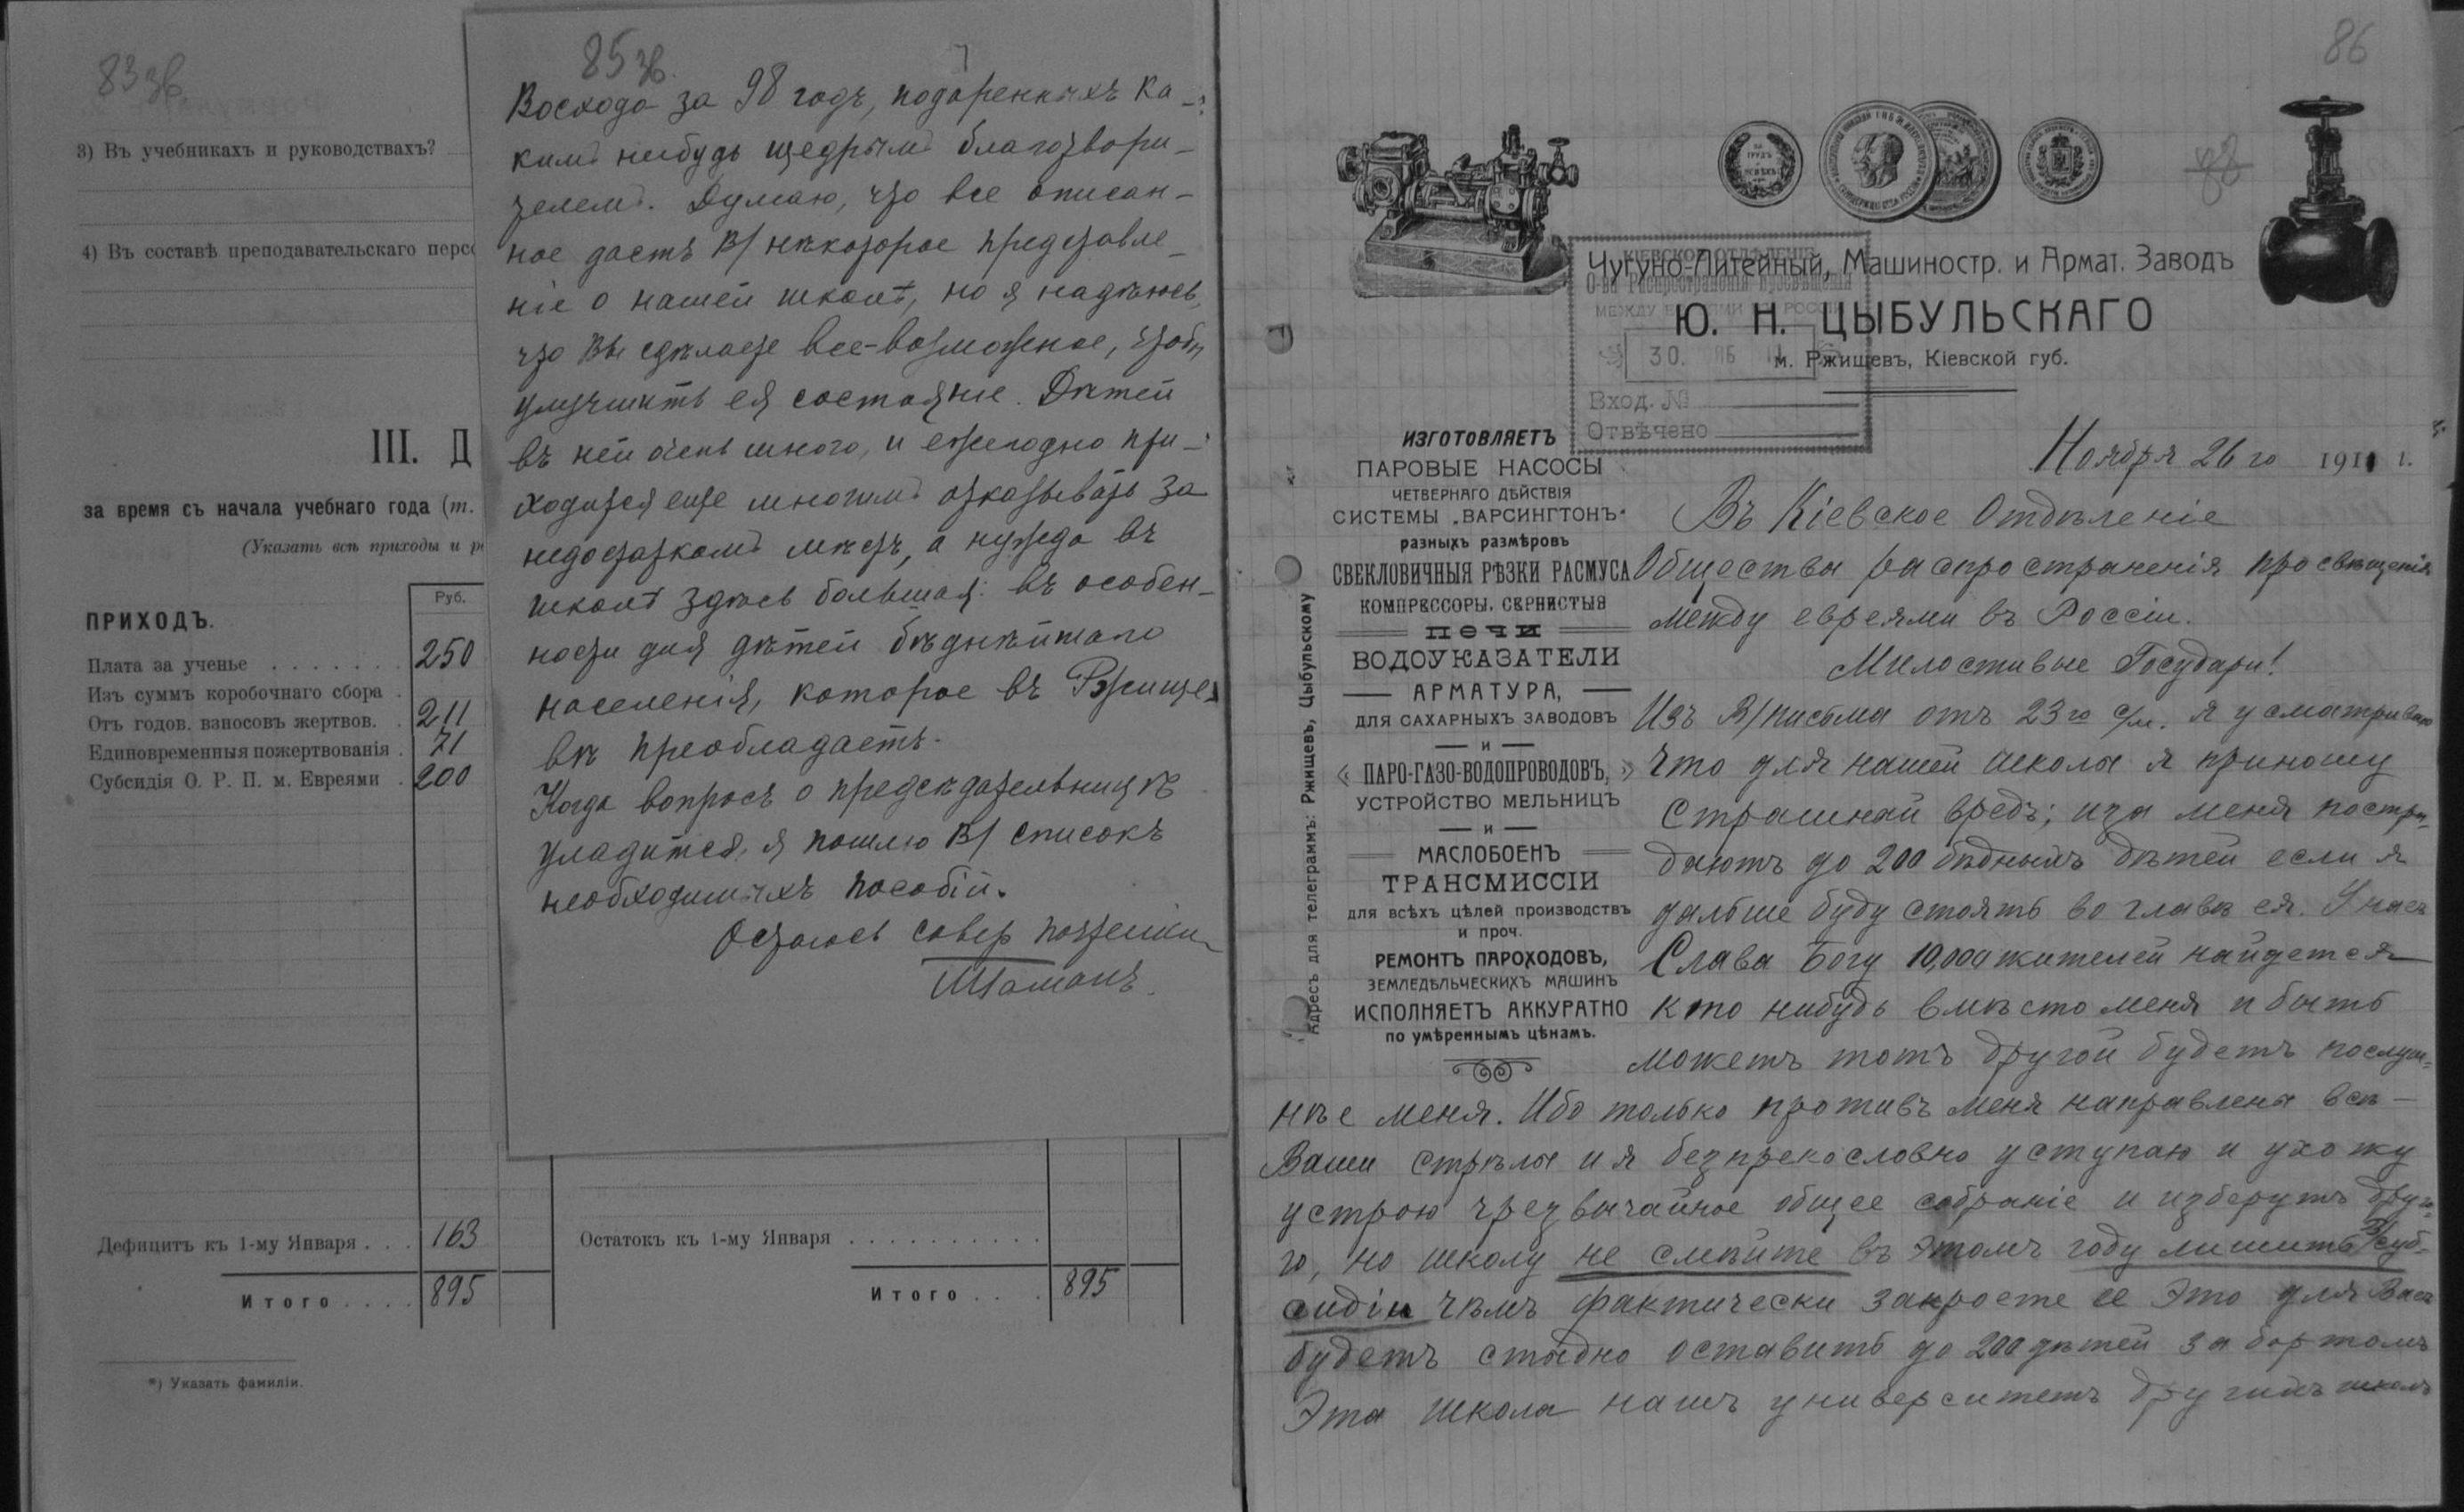 83 зв.
3) Въ учебникахъ и руководствахъ?
4) Въ составѣ преподавательскаго перс
III. Д
за время съ начала учебнаго года (т.
(Указать всѣ приходы и р
Руб.
ПРИХОДЪ.
Плата за ученье 250
Изъ суммъ коробочнаго сбора
Отъ годов. взносовъ жертвов. 211
Единовременныя пожертвованія 71
Субсидія О. Р. П. м. Евреями 200
Дефицитъ къ 1-му Января 163
Итого 895
*) Указать фамиліи.
Остатокъ къ 1-му Января
Итого 895
85 зв.
Восхода за 98 годъ, подаренныхъ ка-
кимъ нибудь щедрымъ благотвори-
телемъ. Думаю, что все описан-
ное дастъ В/ нѣкоторое представле-
ніе о нашей школѣ, но я надѣюсь,
что Вы сдѣлаете все-возможное, чтобы
улучшить ея состояніе. Дѣтей
въ ней очень много, и ежегодно при-
ходится еще многимъ отказывать за
недостаткомъ мѣстъ, а нужда въ
школѣ здѣсь большая: въ особен-
ности для дѣтей бѣднѣйшаго
населенія, которое въ Ржище-
вѣ преобладаетъ.
Когда вопросъ о предсѣдательницѣ
уладится, я пошлю В/ списокъ
необходимыхъ пособій.
Остаюсь совер
86
88
Чугуно-Литейный, Машиностр. и Армат. Заводъ
Ю. Н. ЦЫБУЛЬСКАГО
м. Ржищевъ, Кіевской губ.
КІЕВСКОЕ ОТДѢЛЕНІЕ
О-ва Распространенія Просвѣщенія
МЕЖДУ ЕВРЕЯМИ ВЪ РОССІИ
30.
Вход. №
Отвѣчено
Адресъ для телеграммъ: Ржищевъ, Цыбульскому
ИЗГОТОВЛЯЕТЪ
ПАРОВЫЕ НАСОСЫ
ЧЕТВЕРНАГО ДѢЙСТВІЯ
СИСТЕМЫ „ВАРСИНГТОНЪ"
разныхъ размѣровъ
СВЕКЛОВИЧНЫЯ РѢЗКИ РАСМУСА
КОМПРЕССОРЫ, СЕРНИСТЫЯ
ПЕЧИ
ВОДОУКАЗАТЕЛИ
АРМАТУРА,
ДЛЯ САХАРНЫХЪ ЗАВОДОВЪ
и
« ПАРО-ГАЗО-ВОДОПРОВОДОВЪ, »
УСТРОЙСТВО МЕЛЬНИЦЪ
и
МАСЛОБОЕНЪ
ТРАНСМИССІИ
для всѣхъ цѣлей производствъ
и проч.
РЕМОНТЪ ПАРОХОДОВЪ,
ЗЕМЛЕДѢЛЬЧЕСКИХЪ МАШИНЪ
ИСПОЛНЯЕТЪ АККУРАТНО
по умѣреннымъ цѣнамъ.
Ноября 26 го 1911 г.
Въ Кіевское Отдѣленіе
Общества распространенія просвѣщенія
между евреями въ Россіи.
Милостивые Государи!
Изъ В/письма отъ 23 го с/м. я усматриваю
что для нашей школы я приношу
страшный вредъ; иза меня постра-
даютъ до 200 бѣдныхъ дѣтей если я
дальше буду стоять во главѣ ея. У насъ
Слава Богу 10,000 жителей найдется
кто нибудь вмѣсто меня и быть
можетъ тотъ другой будетъ послуш-
нѣе меня. Ибо только противъ меня направлены всѣ
Ваши стрѣлы и я безпрекословно уступаю и ухожу
устрою чрезвычайное общее собраніе и изберутъ друго-
го, но школу не смѣйте въ этомъ году лишить суб-
сидіи чѣмъ фактически закроете ее Это для Васъ
будетъ стыдно оставить до 200 дѣтей за бортомъ
Эта школа нашъ университетъ другихъ школъ